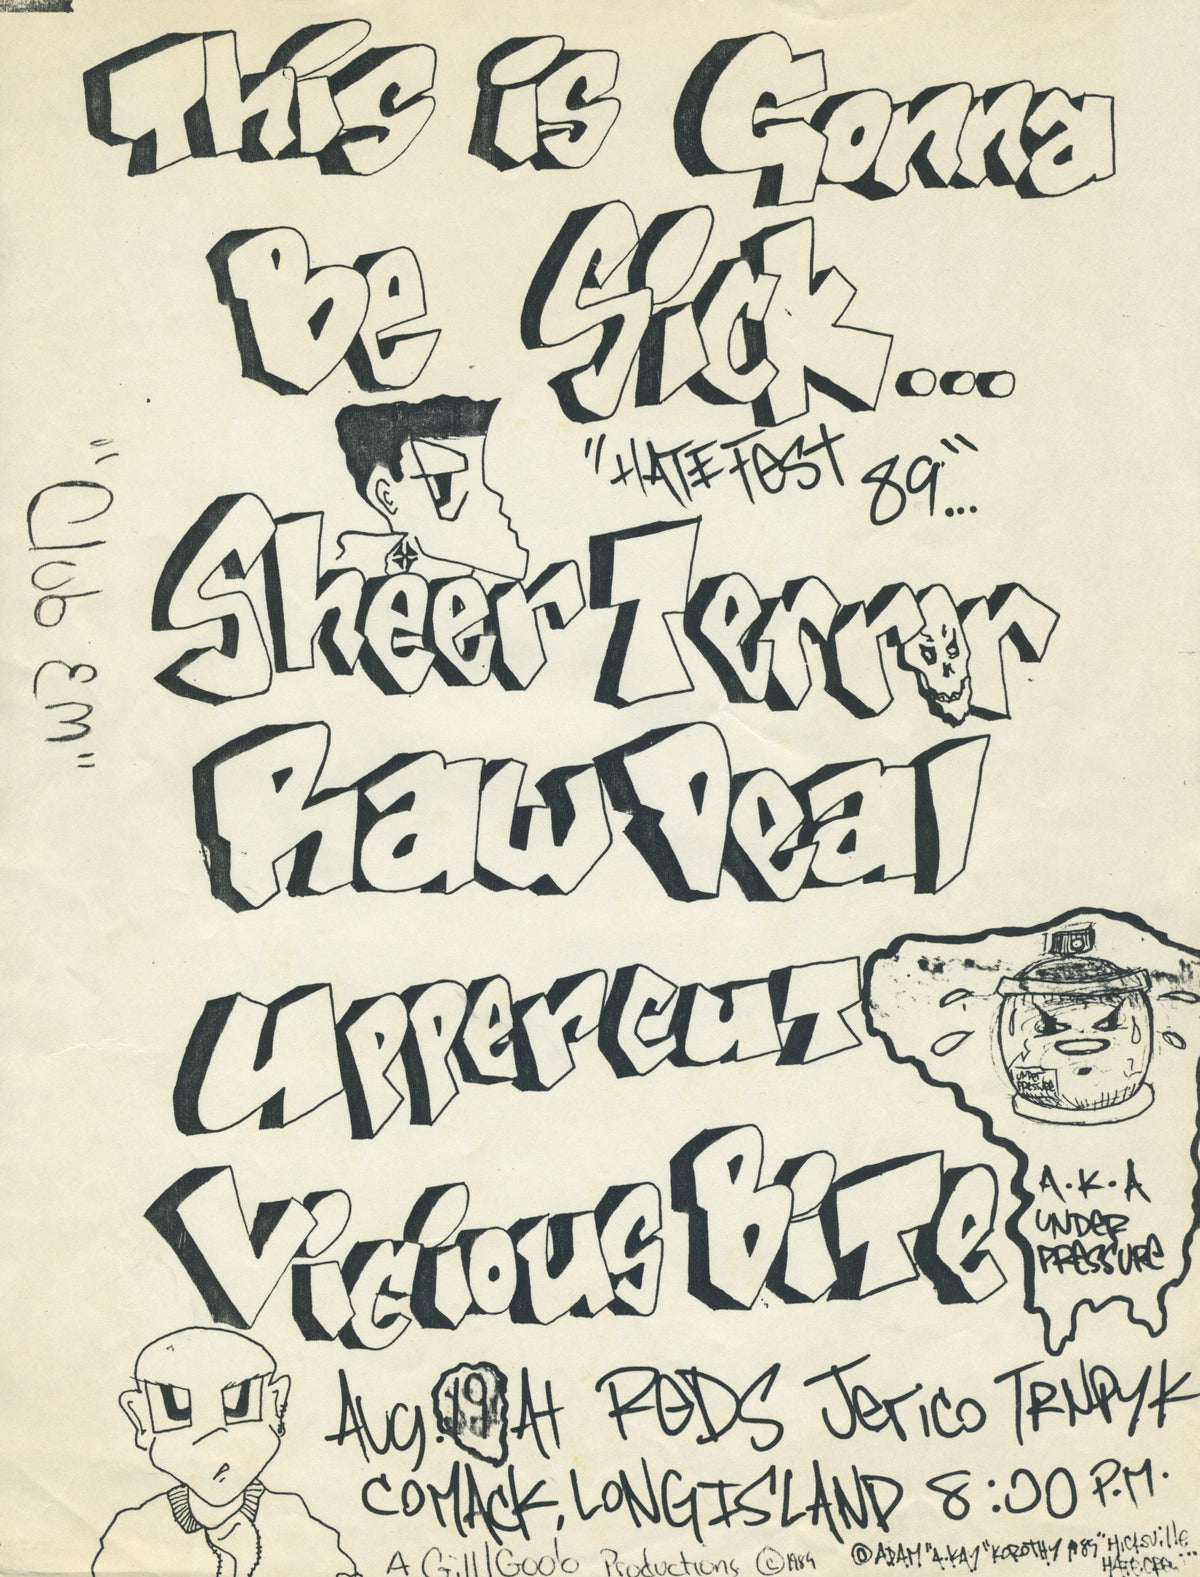 This is Gonna
Be Sick...
"HATEFEST 89"...
Sheer Terror
Raw Deal
Uppercut
Vicious Bite
UNDER
PRESSURE
A.K.A
UNDER
PRESSURE
Aug. 19 At REDS Jerico TRNPYK
COMACK, LONG ISLAND 8:00 P.M.
A Gill/Goolo Productions © 1989
© ADAM "A.KAY" KOROTHY 1989 "Hicksville